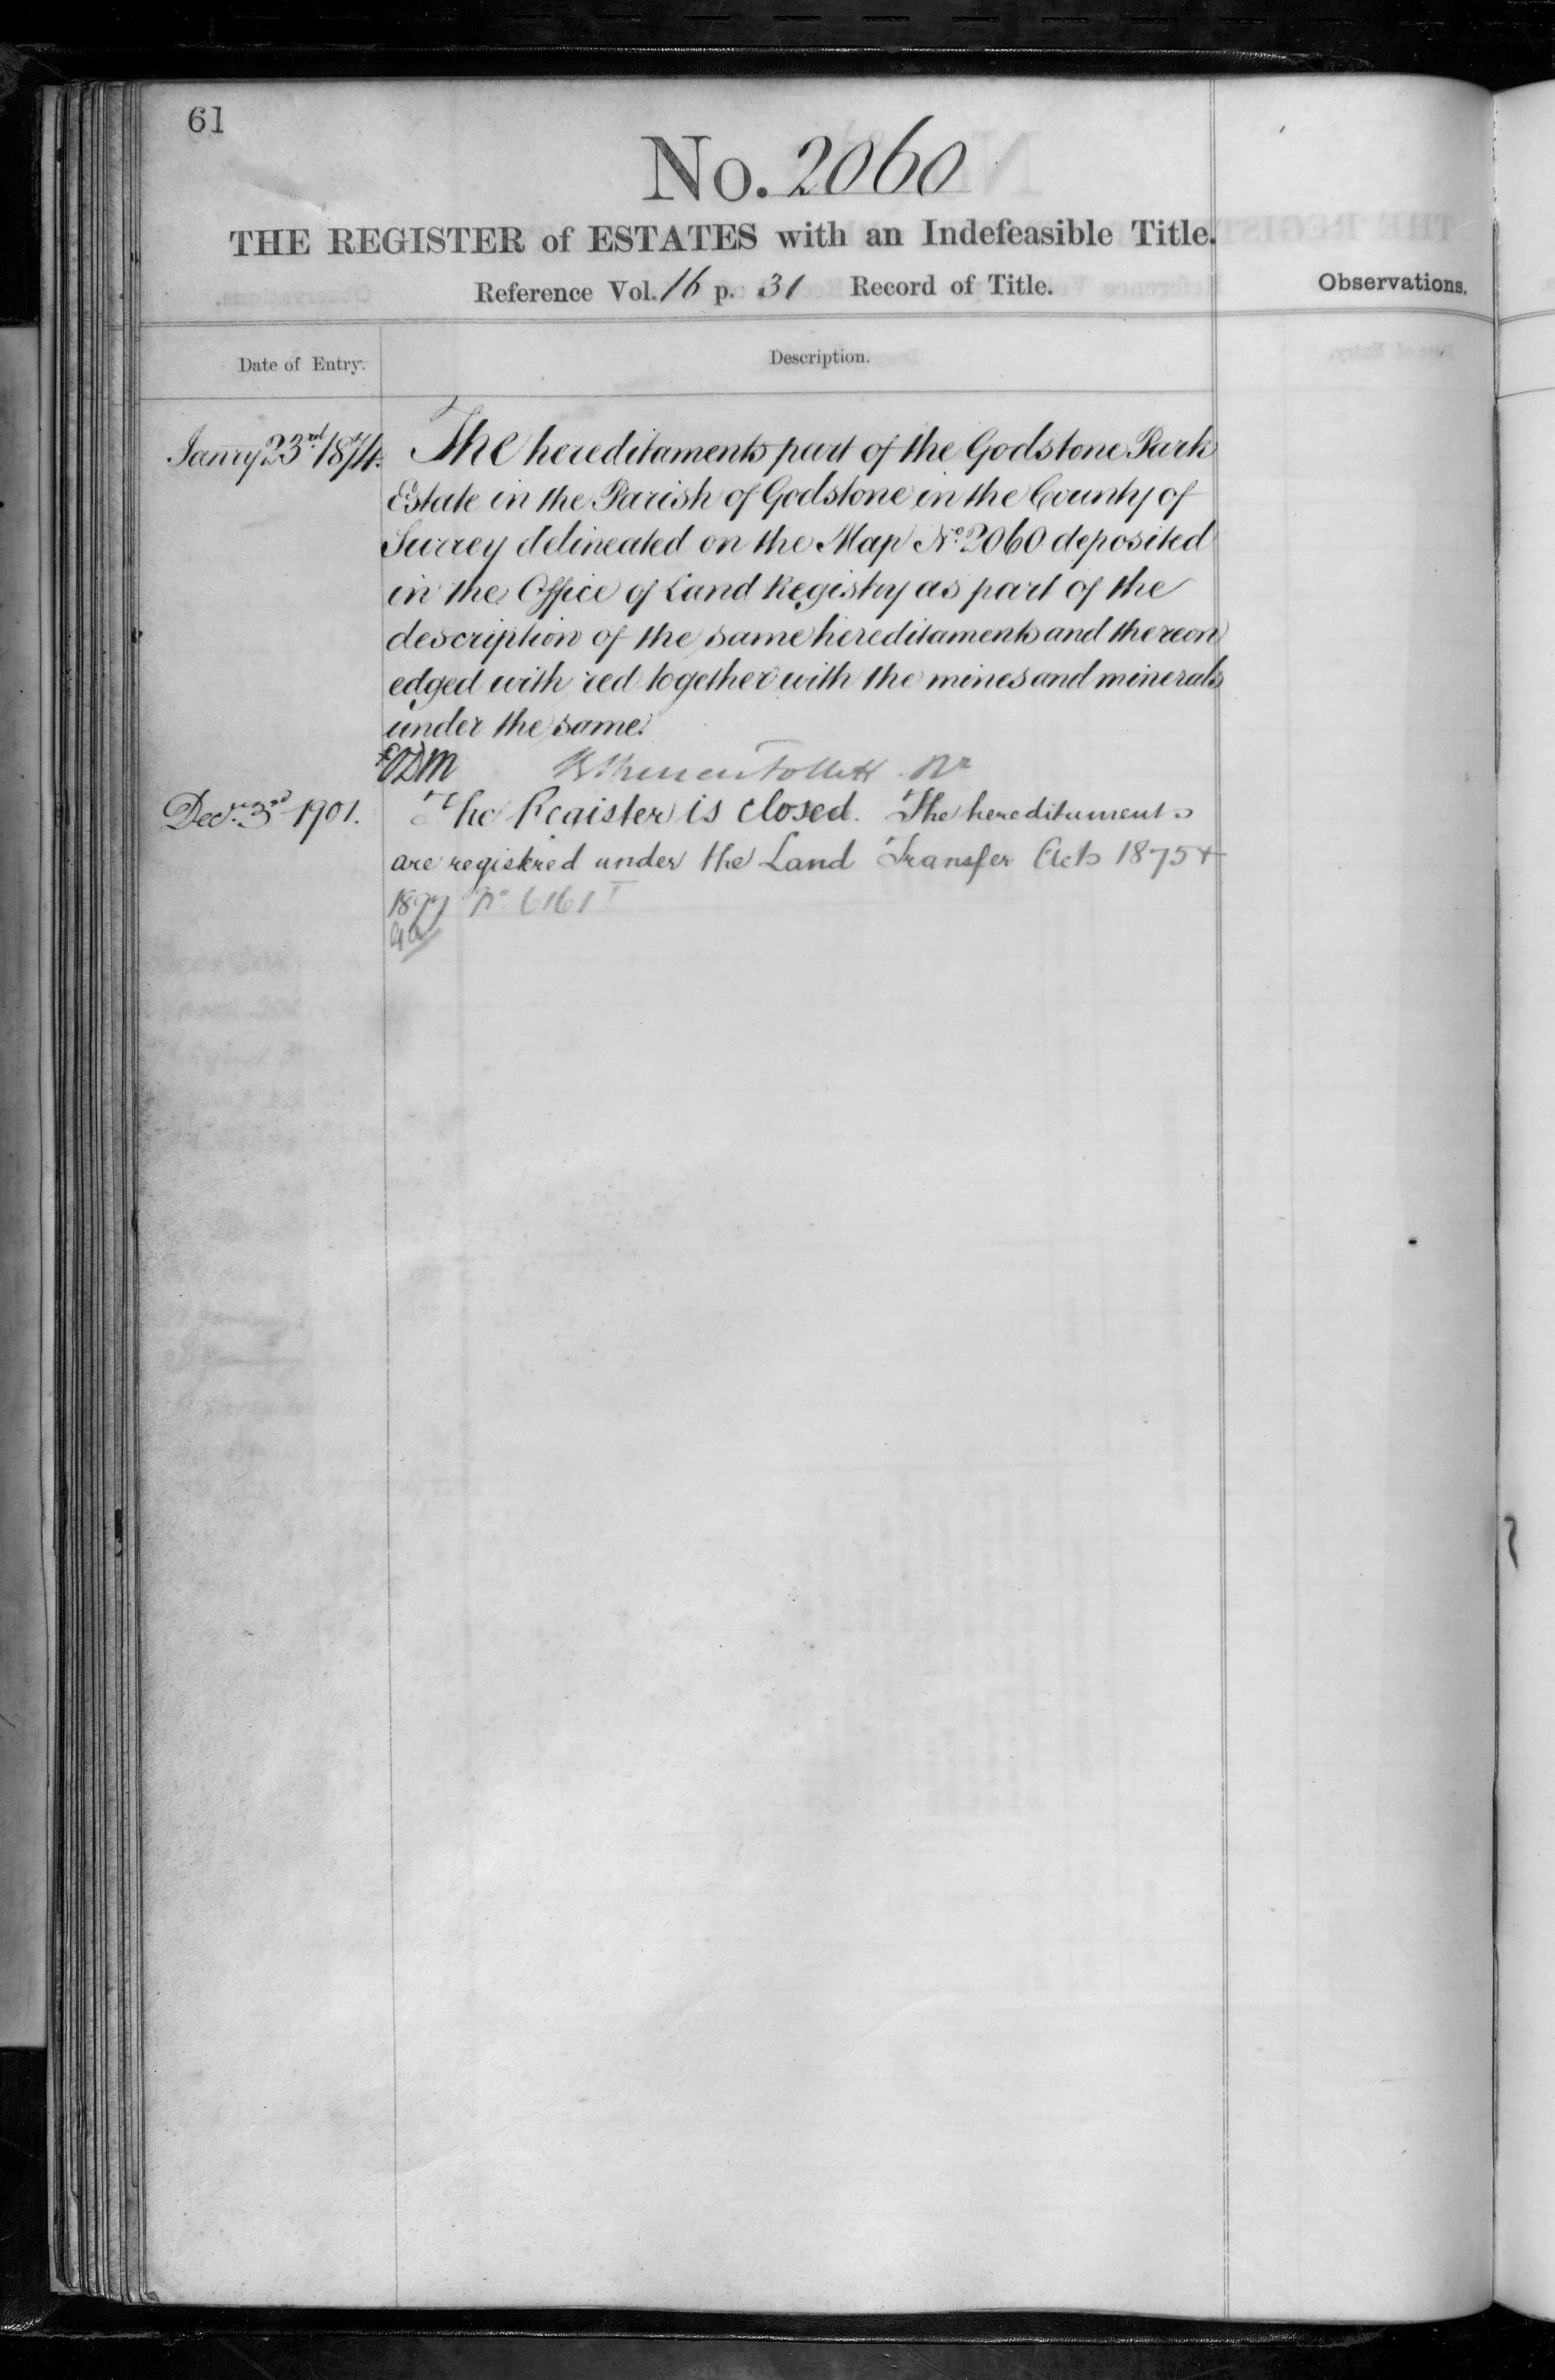 61
No. 2060
THE REGISTER of ESTATES with an Indefeasible Title.
Reference Vol. 16 p. 31 Record of Title.
Observations.
Date of Entry.
Description.
Janry 23rd 1874. The hereditaments part of the Godstone Park
Estate in the Parish of Godstone in the County of
Surrey delineated on the Map No. 2060 deposited
in the Office of Land Registry as part of the
description of the same hereditaments and thereon
edged with red together with the mines and minerals
under the same.
Follett
Decr. 3rd 1901. The Register is closed. The hereditaments
are registered under the Land Transfer Acts 1875 &
1897 No. 6161